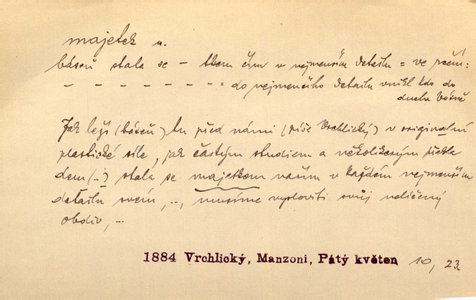 majetek m.
báseň stala se – tkem čím v nejmenším detailu = ve
– – – – – – – do nejmenšího detailu vnikl kdo do
ducha básně
Jak leží (báseň) tu před námi (píše Vrchlický) v originalní
plastické síle, jak častým studiem a několikerým překla
dem (...) stala se majetkem naším v každém nejmenším
detailu svém, ..., musíme vysloviti svůj nelíčený
obdiv, ...
1884 Vrchlický, Manzoni, Pátý květen 10, 23.